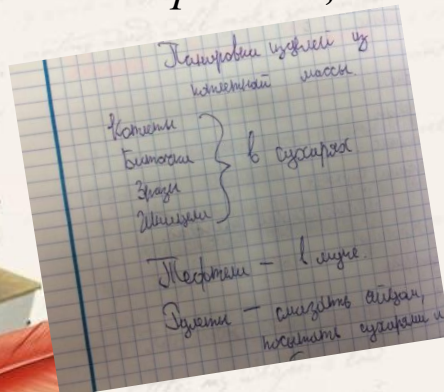 Панировка изделий из
котлетной массы.
Котлеты
Биточки
Зразы
Шницели
} в сухарях
Тефтели – в муке.
Рулеты – смазать яйцом,
посыпать сухарями и